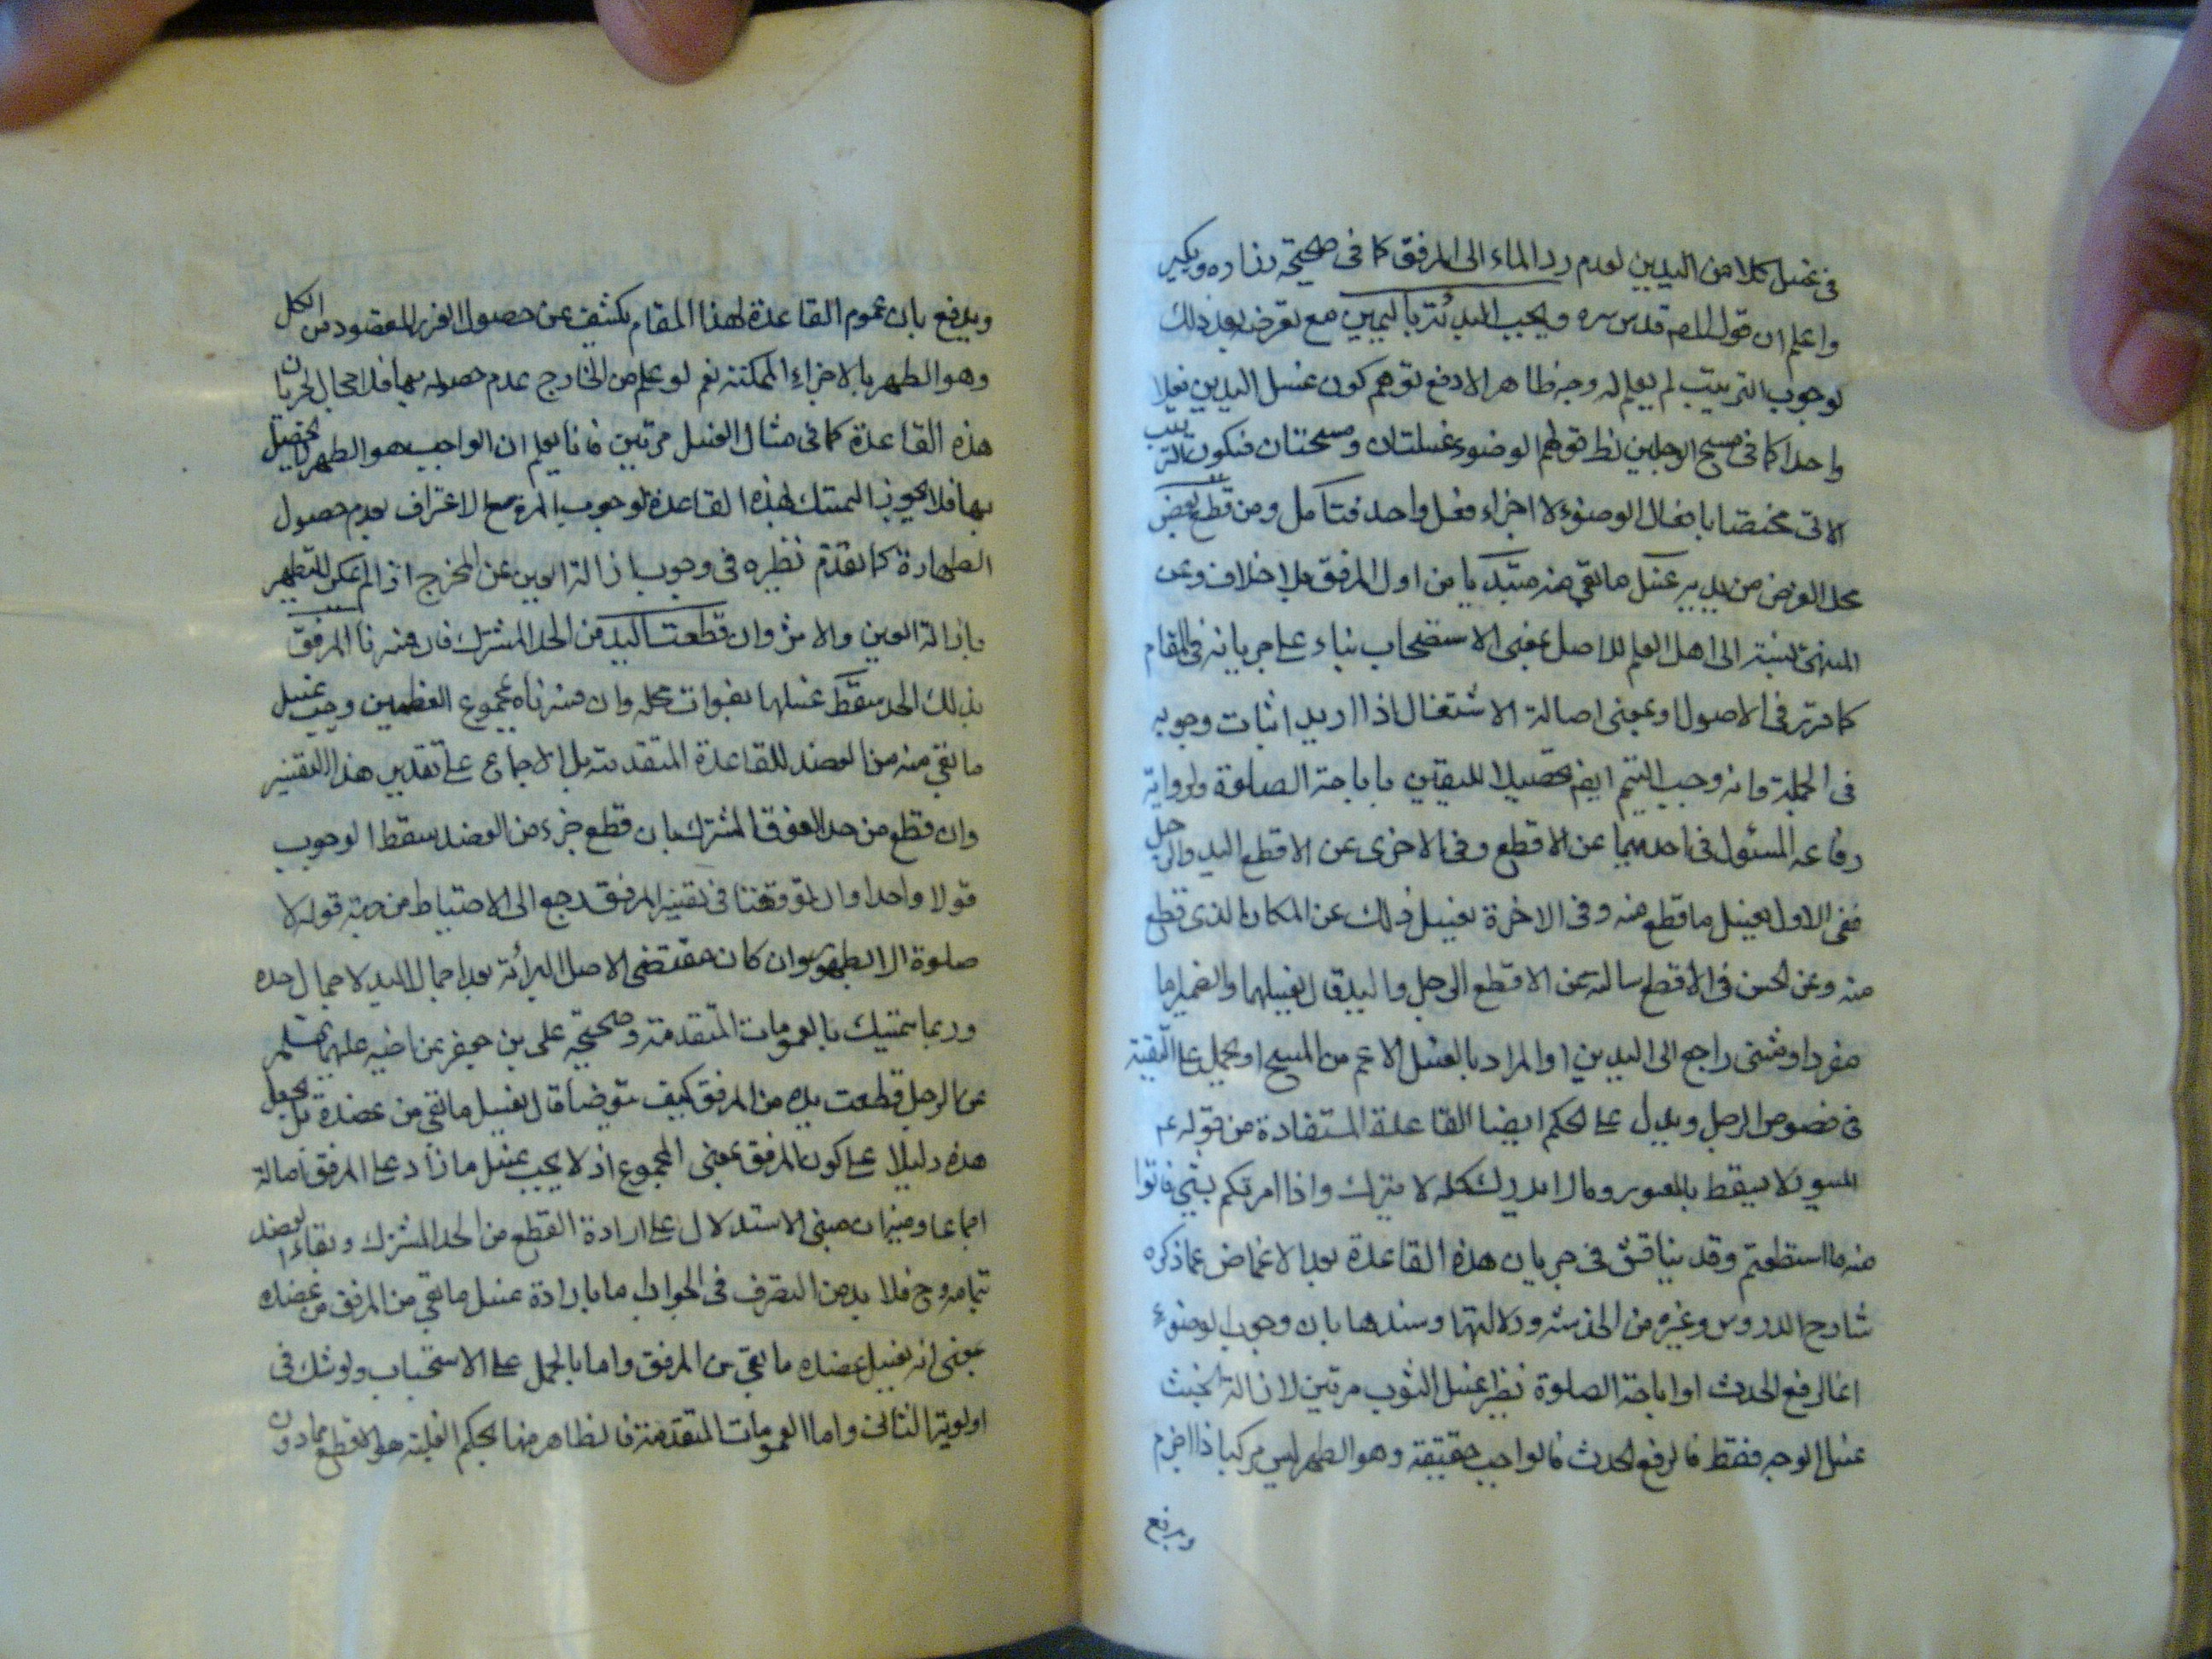 في غسل كلا من اليدين لعدم رد الماء الى المرفق كما في صحيحة زراره وبكير
واعلم ان قول المصم قدس سره ويجب البدئة باليمين مع تعرضه بعد ذلك
لوجوب الترتيب لم يعلم له وجه ظاهر الا دفع توهم كون غسل اليدين فعلا
واحدا كما في مسح الرجلين نظر قولهم الوضوء غسلتان ومسحتان فيكون الترتيب
الاتي مختصا بافعال الوضوء لا اجزاء فعل واحد فتامل ومن قطع بعض
محل الفرض من يديه غسل ما بقي منه مبتديا من اول المرفق بلا خلاف وعن
المنتهى نسبته الى اهل العلم للاصل بمعنى الاستصحاب بناء على جريانه في المقام
كما قرر في الاصول او بمعنى اصالة الاشتغال اذا اريد اثبات وجوبه
في الجملة فانه وجب التيمم ايضم تحصيلا لليقين باباحة الصلوة ولرواية
رفاعه المسئول في احديهما عن الاقطع وفي الاخرى عن الاقطع اليد والرجل
ففي الاول يغسل ما قطع منه وفي الاخرة يغسل ذلك عن المكان الذي قطع
منه وعن الحسن في الاقطع سالته عن الاقطع الرجل واليد قال يغسلهما والضمير اما
مفرد او مثنى راجع الى اليدين او المراد بالغسل الاعم من المسح او يحمل على التقية
في خصوص الرجل ويدل على الحكم ايضا القاعدة المستفادة من قوله عم
الميسور لا يسقط بالمعسور وما لا يدرك كله لا يترك واذا امرتكم بشئ فاتوا
منه ما استطعتم وقد يناقش في جريان هذه القاعدة بعد الاغماض عما ذكره
شارح الدروس وغيره من الخدشه ودلالتها وسندها بان وجوب الوضوء
انما لرفع الحدث او اباحة الصلوة نظير غسل الثوب مرتين لازالة الخبث
غسل الوجه فقط فالرفع الحدث فالواجب حقيقة وهو الطهر ليس مركبا ذا اجزاء
ويدفع
ويدفع بان عموم القاعدة لهذا المقام يكشف عن حصول الغرض المقصود من الكل
وهو الطهر بالاجزاء الممكنة نعم لو علم من الخارج عدم حصوله بها فلا مجال لجريان
هذه القاعدة كما في مثال الغسل مرتين فانا نعلم ان الواجب هو الطهر لا يحصل
بها فلا يجوز التمسك بهذه القاعدة لوجوب المرة مع الاعتراف بعدم حصول
الطهارة كما تقدم نظيره في وجوب ازالة العين عن المخرج اذا لم يمكن التطهير
بازالة العين والاثر وان قطعت اليد من الحد المشترك فان فسرنا المرفق
بذلك الحد سقط غسلها بفوات محله وان فسرناه بمجموع العظمين وجب غسل
ما بقي منه من العضد للقاعدة المتقدمة بل الاجماع على تقدير هذا التفسير
وان قطع من حد الفوق المشترك بان قطع جزء من العضد سقط الوجوب
قولا واحدا وان توقفنا في تفسير المرفق رجع الى الاحتياط من جهة قوله لا
صلوة الا بطهور وان كان مقتضى الاصل البرائة بعد اجمال اليد لاجمال حده
وربما يتمسك بالعمومات المتقدمة وصحيحة علي بن جعفر عن اخيه عليهما السلام
عن الرجل قطعت يده من المرفق كيف يتوضا قال يغسل ما بقي من عضده بل يجعل
هذه دليلا على كون المرفق بمعنى المجموع اذ لا يجب غسل ما زاد على المرفق اصالة
اجماعا وفيه ان مبنى الاستدلال على ارادة القطع من الحد المشترك وبقاء العضد
بتمامه وح فلا بد من التصرف في الجواب اما بارادة غسل ما بقي من المرفق من عضده
بمعنى انه يغسل عضده ما بقي من المرفق واما بالحمل على الاستحباب ولو شك في
اولوية الثاني واما العمومات المتقدمة فالظاهر منها بحكم الغلبة هو القطع مما دون